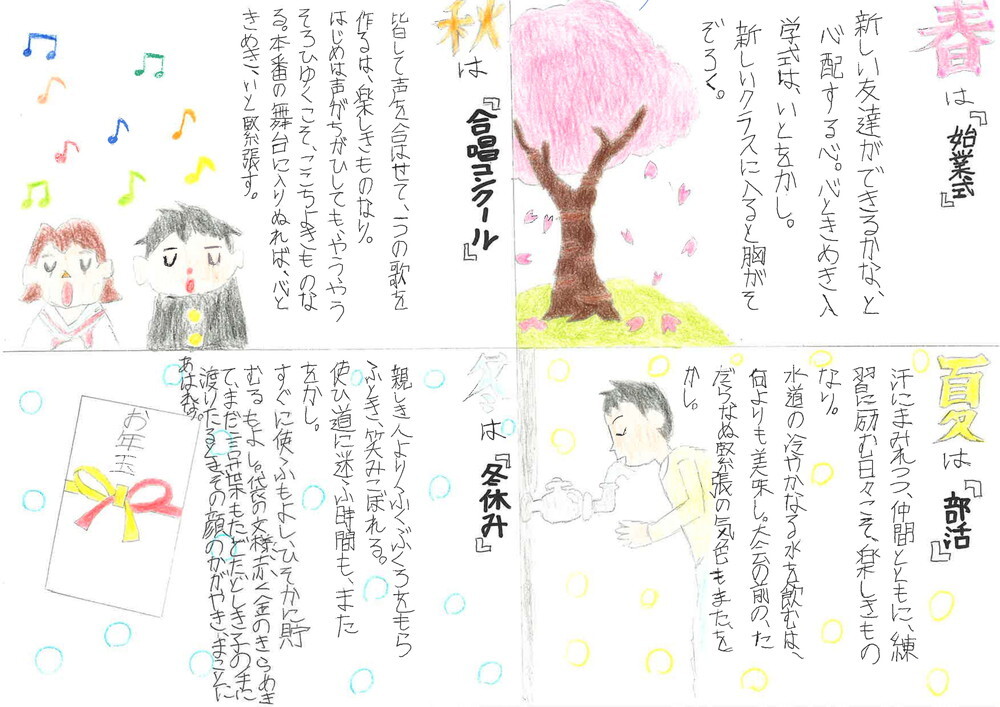 春は『始業式』
新しい友達ができるかな、と
心配する心。心ときめき入
学式は、いとをかし。
新しいクラスに入ると胸がそ
ぞろく。
夏は『部活』
汗にまみれつつ、仲間とともに、練
習に励む日々こそ、楽しきもの
なり。
水道の冷ややかなる水を飲むは、
何よりも美味し。大会の前の、た
だらなぬ緊張の気色もまた、を
かし。
秋は『合唱コンクール』
皆して声を合はせて、一つの歌を
作るは、楽しきものなり。
はじめは声がちがひしても、やうやう
そろひゆくこそ、ここちよきものな
る。本番の舞台に入りぬれば、心と
きめき、いと緊張す。
冬は『冬休み』
親しき人よりふくぶくろをもら
ふとき、笑みこぼれる。
使ひ道に迷ふ時間も、また
をかし。
すぐに使ふもよし、ひそかに貯
むるもよし。袋の文様、赤く金のきらめき
て、まだ言の葉もたどたどしき子の手に
渡りたるときその顔のかがやき、まことに
あはれなり。
お年玉